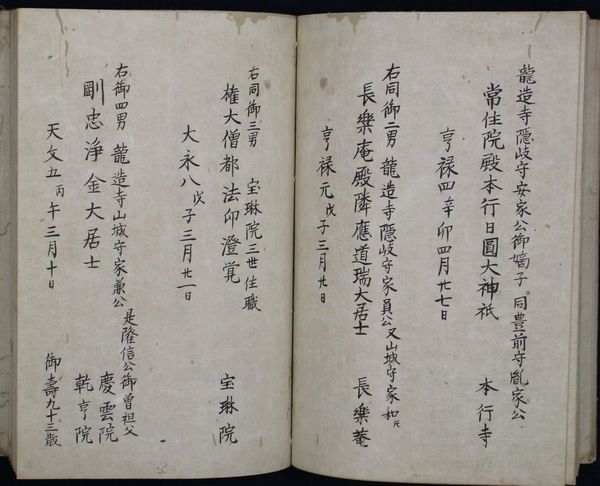 龍造寺隠岐守安家公御嫡子 同豊前守胤家公
常住院殿本行日圓大神祇 本行寺
亨禄四辛卯四月廿七日
右同御二男 龍造寺隠岐守家員公又山城守家和ト
長樂庵殿隣應道瑞大居士 長樂菴
亨禄元戊子三月廿日
右同御三男 宝琳院三世住職
権大僧都法印澄覚 宝琳院
大永八戊子三月廿一日
右御四男 龍造寺山城守家兼公 是隆信公御曽祖父
剛忠浄金大居士 慶雲院 乾亨院
天文五丙午三月十日 御壽九十三歳